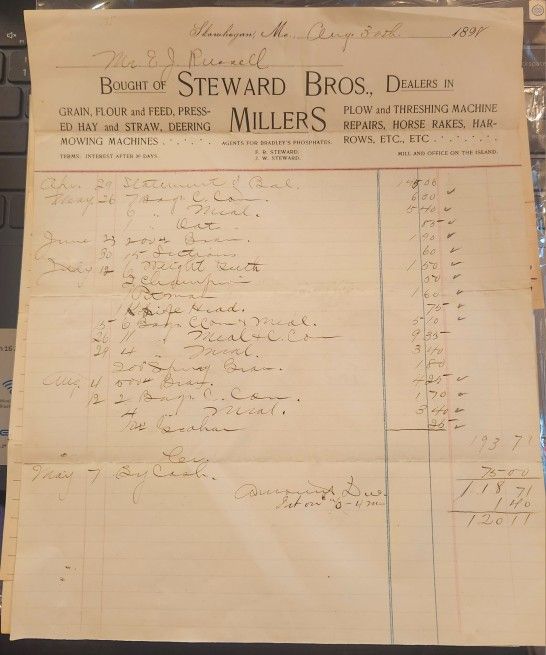 Skowhegan, Me., Aug 30th 1898
Mr. E. J. Russell
BOUGHT OF STEWARD BROS., DEALERS IN
GRAIN, FLOUR and FEED, PRESS-
ED HAY and STRAW, DEERING
MOWING MACHINES . . . . . .
MILLERS
AGENTS FOR BRADLEY'S PHOSPHATES.
F. B. STEWARD.
J. W. STEWARD.
PLOW and THRESHING MACHINE
REPAIRS, HORSE RAKES, HAR-
ROWS, ETC., ETC . . . . . .
TERMS: INTEREST AFTER 30 DAYS.
MILL AND OFFICE ON THE ISLAND.
Apr. 29 Statement & Bal.
May 26 7 Bags C. Corn. 6 00
6 " Meal. 5 40
1 " Oat. 85
June 23 200# Bran. 1 90
30 15 Sections 60
July 12 6 Weight 1 50
50
1 Pitman 1 60
1 Knife Head. 75
15 6 Bags C Corn & Meal. 5 10
26 11 " Meal & C. Co 9 35
29 4 " Meal. 3 40
200# Bran. 1 80
Aug 4 500# Bran. 4 25
12 2 Bags C. Corn. 1 70
4 " Meal. 3 40
25
193 71
Cr.
May 7 By Cash. 75 00
Amount Due. 118 71
Int on 4 m 1 40
120 11